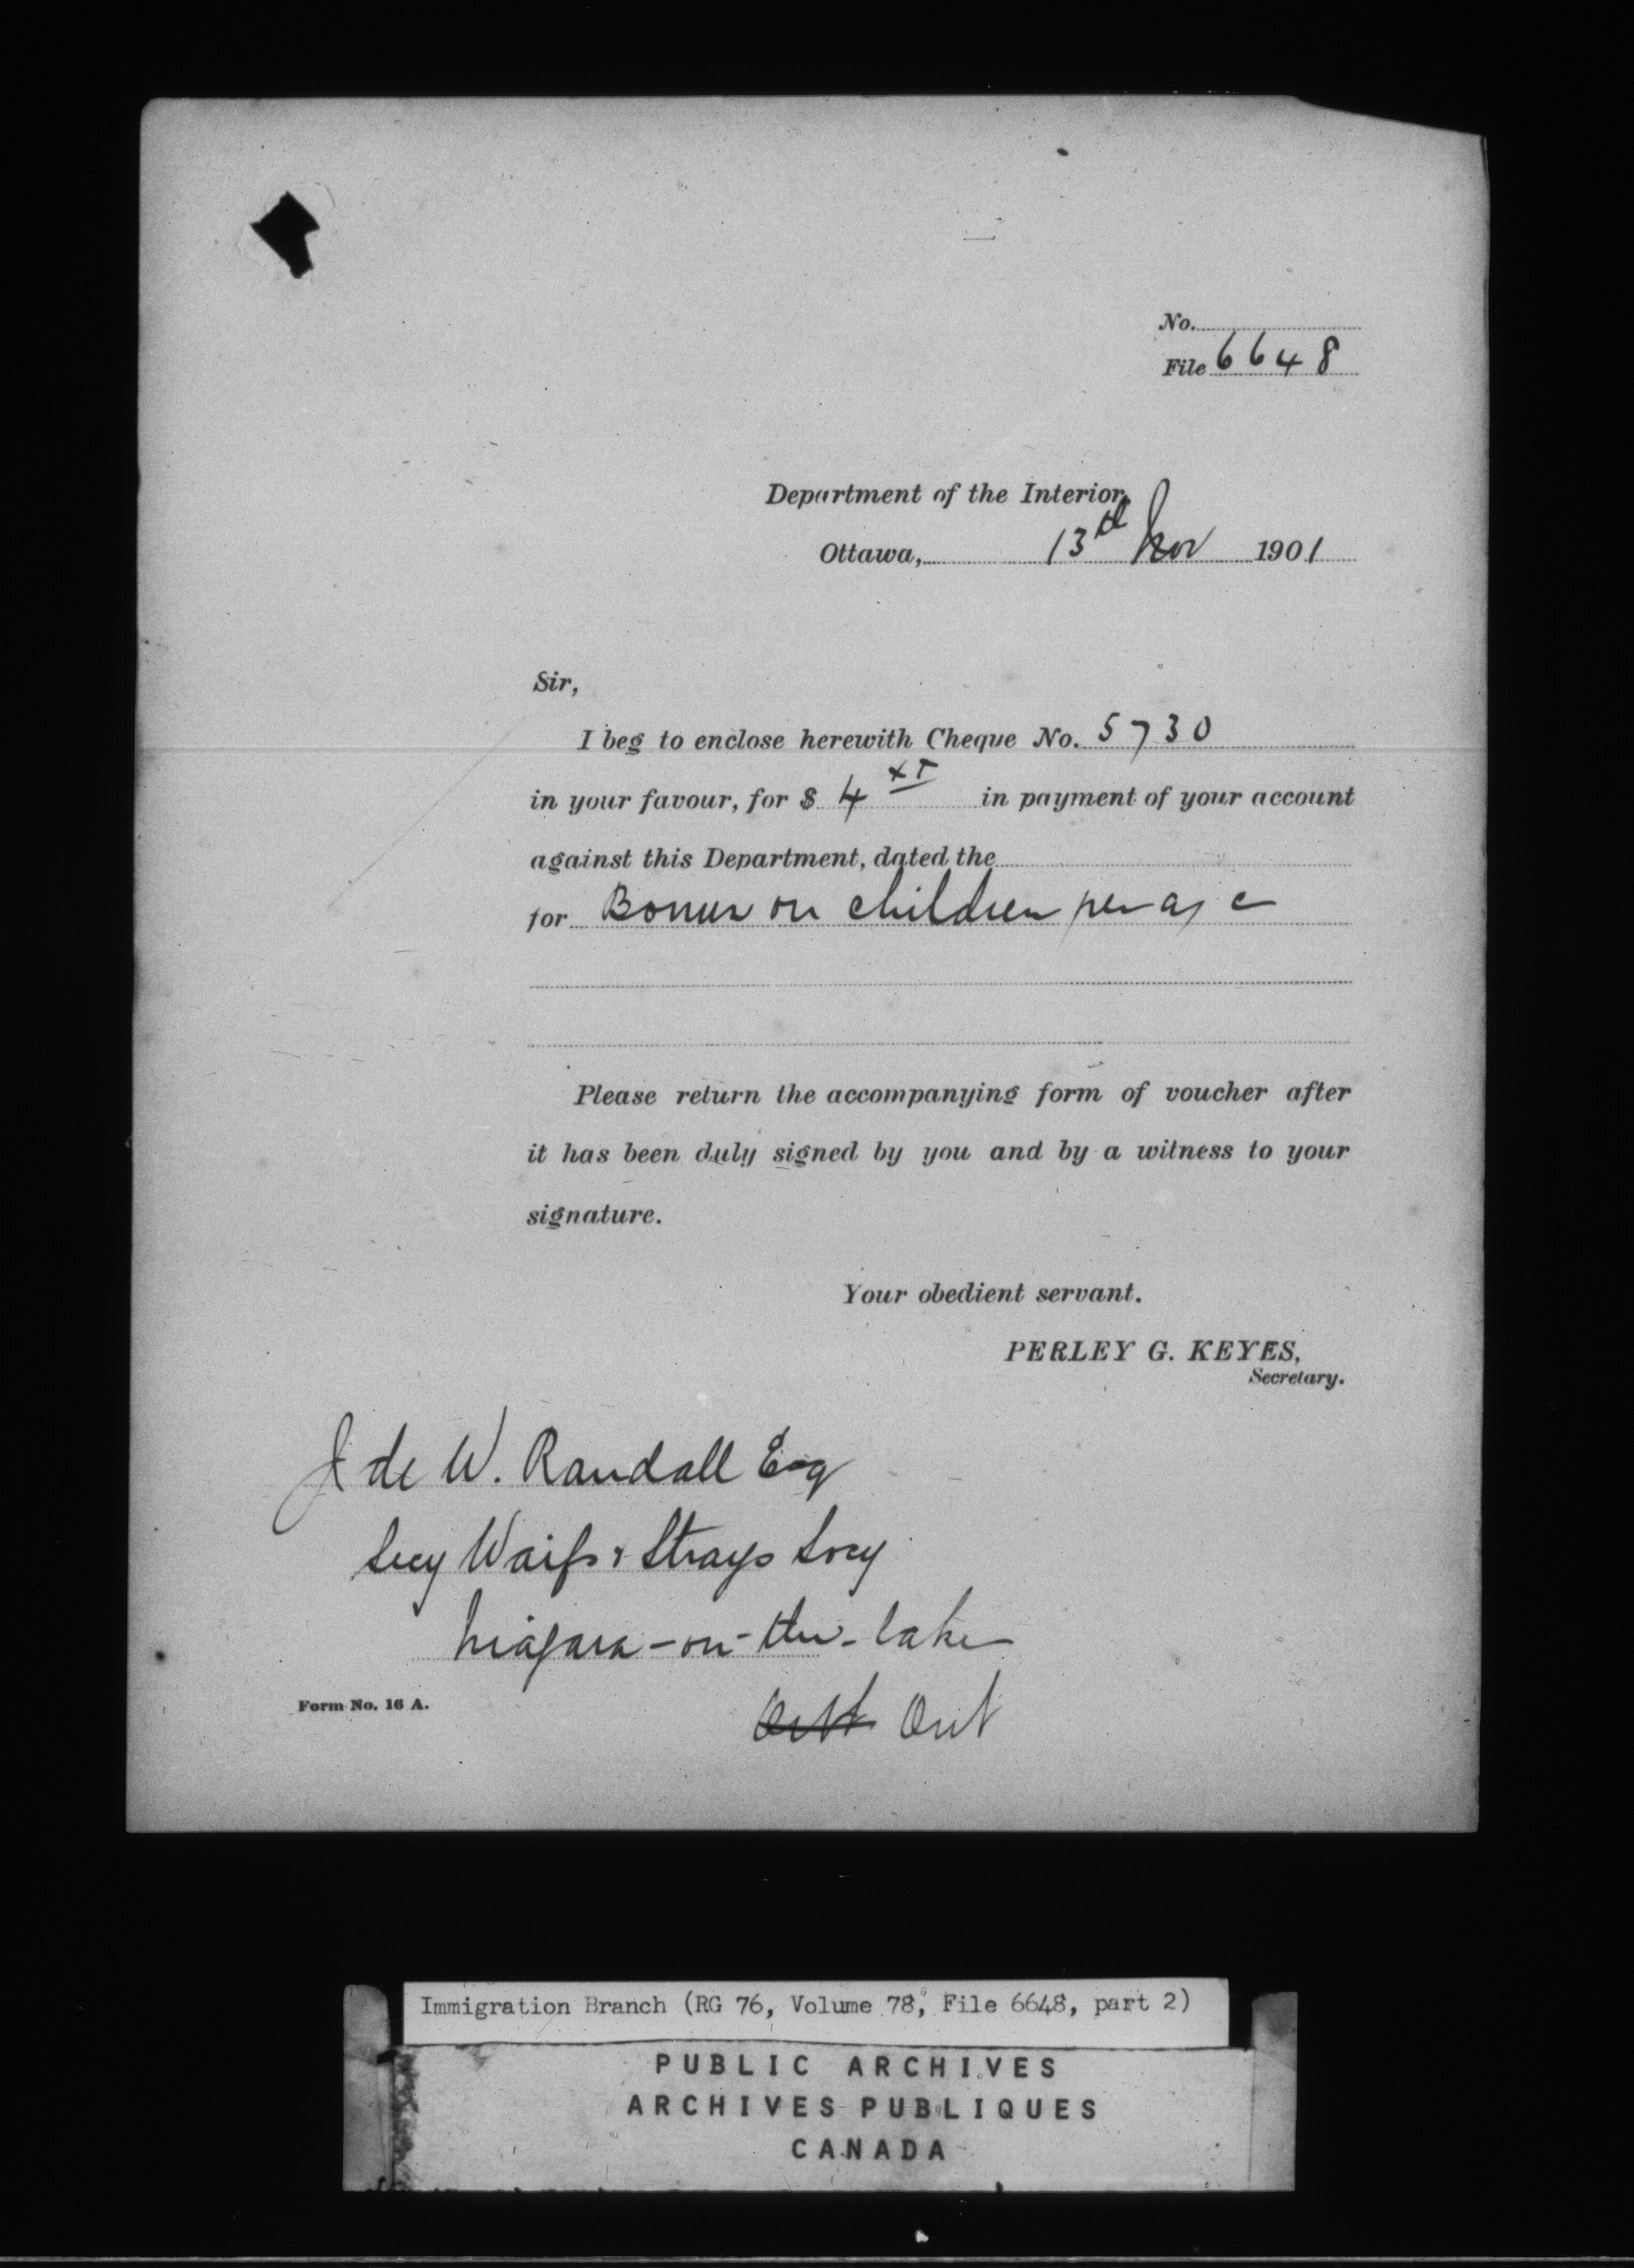 No.
File 6648
Department of the Interior,
Ottawa, 13th Nov 1901
Sir,
I beg to enclose herewith Cheque No. 5730
in your favour, for $ 4 in payment of your account
against this Department, dated the
for Bonus on children per a/c
Please return the accompanying form of voucher after
it has been duly signed by you and by a witness to your
signature.
Your obedient servant.
PERLEY G. KEYES,
Secretary.
J de W. Randall Esq
Secy Waifs & Strays Socy
Niagara-on-the-lake
Form No. 16 A.
Ont
Immigration Branch (RG 76, Volume 78, File 6648, part 2)
PUBLIC ARCHIVES
ARCHIVES PUBLIQUES
CANADA